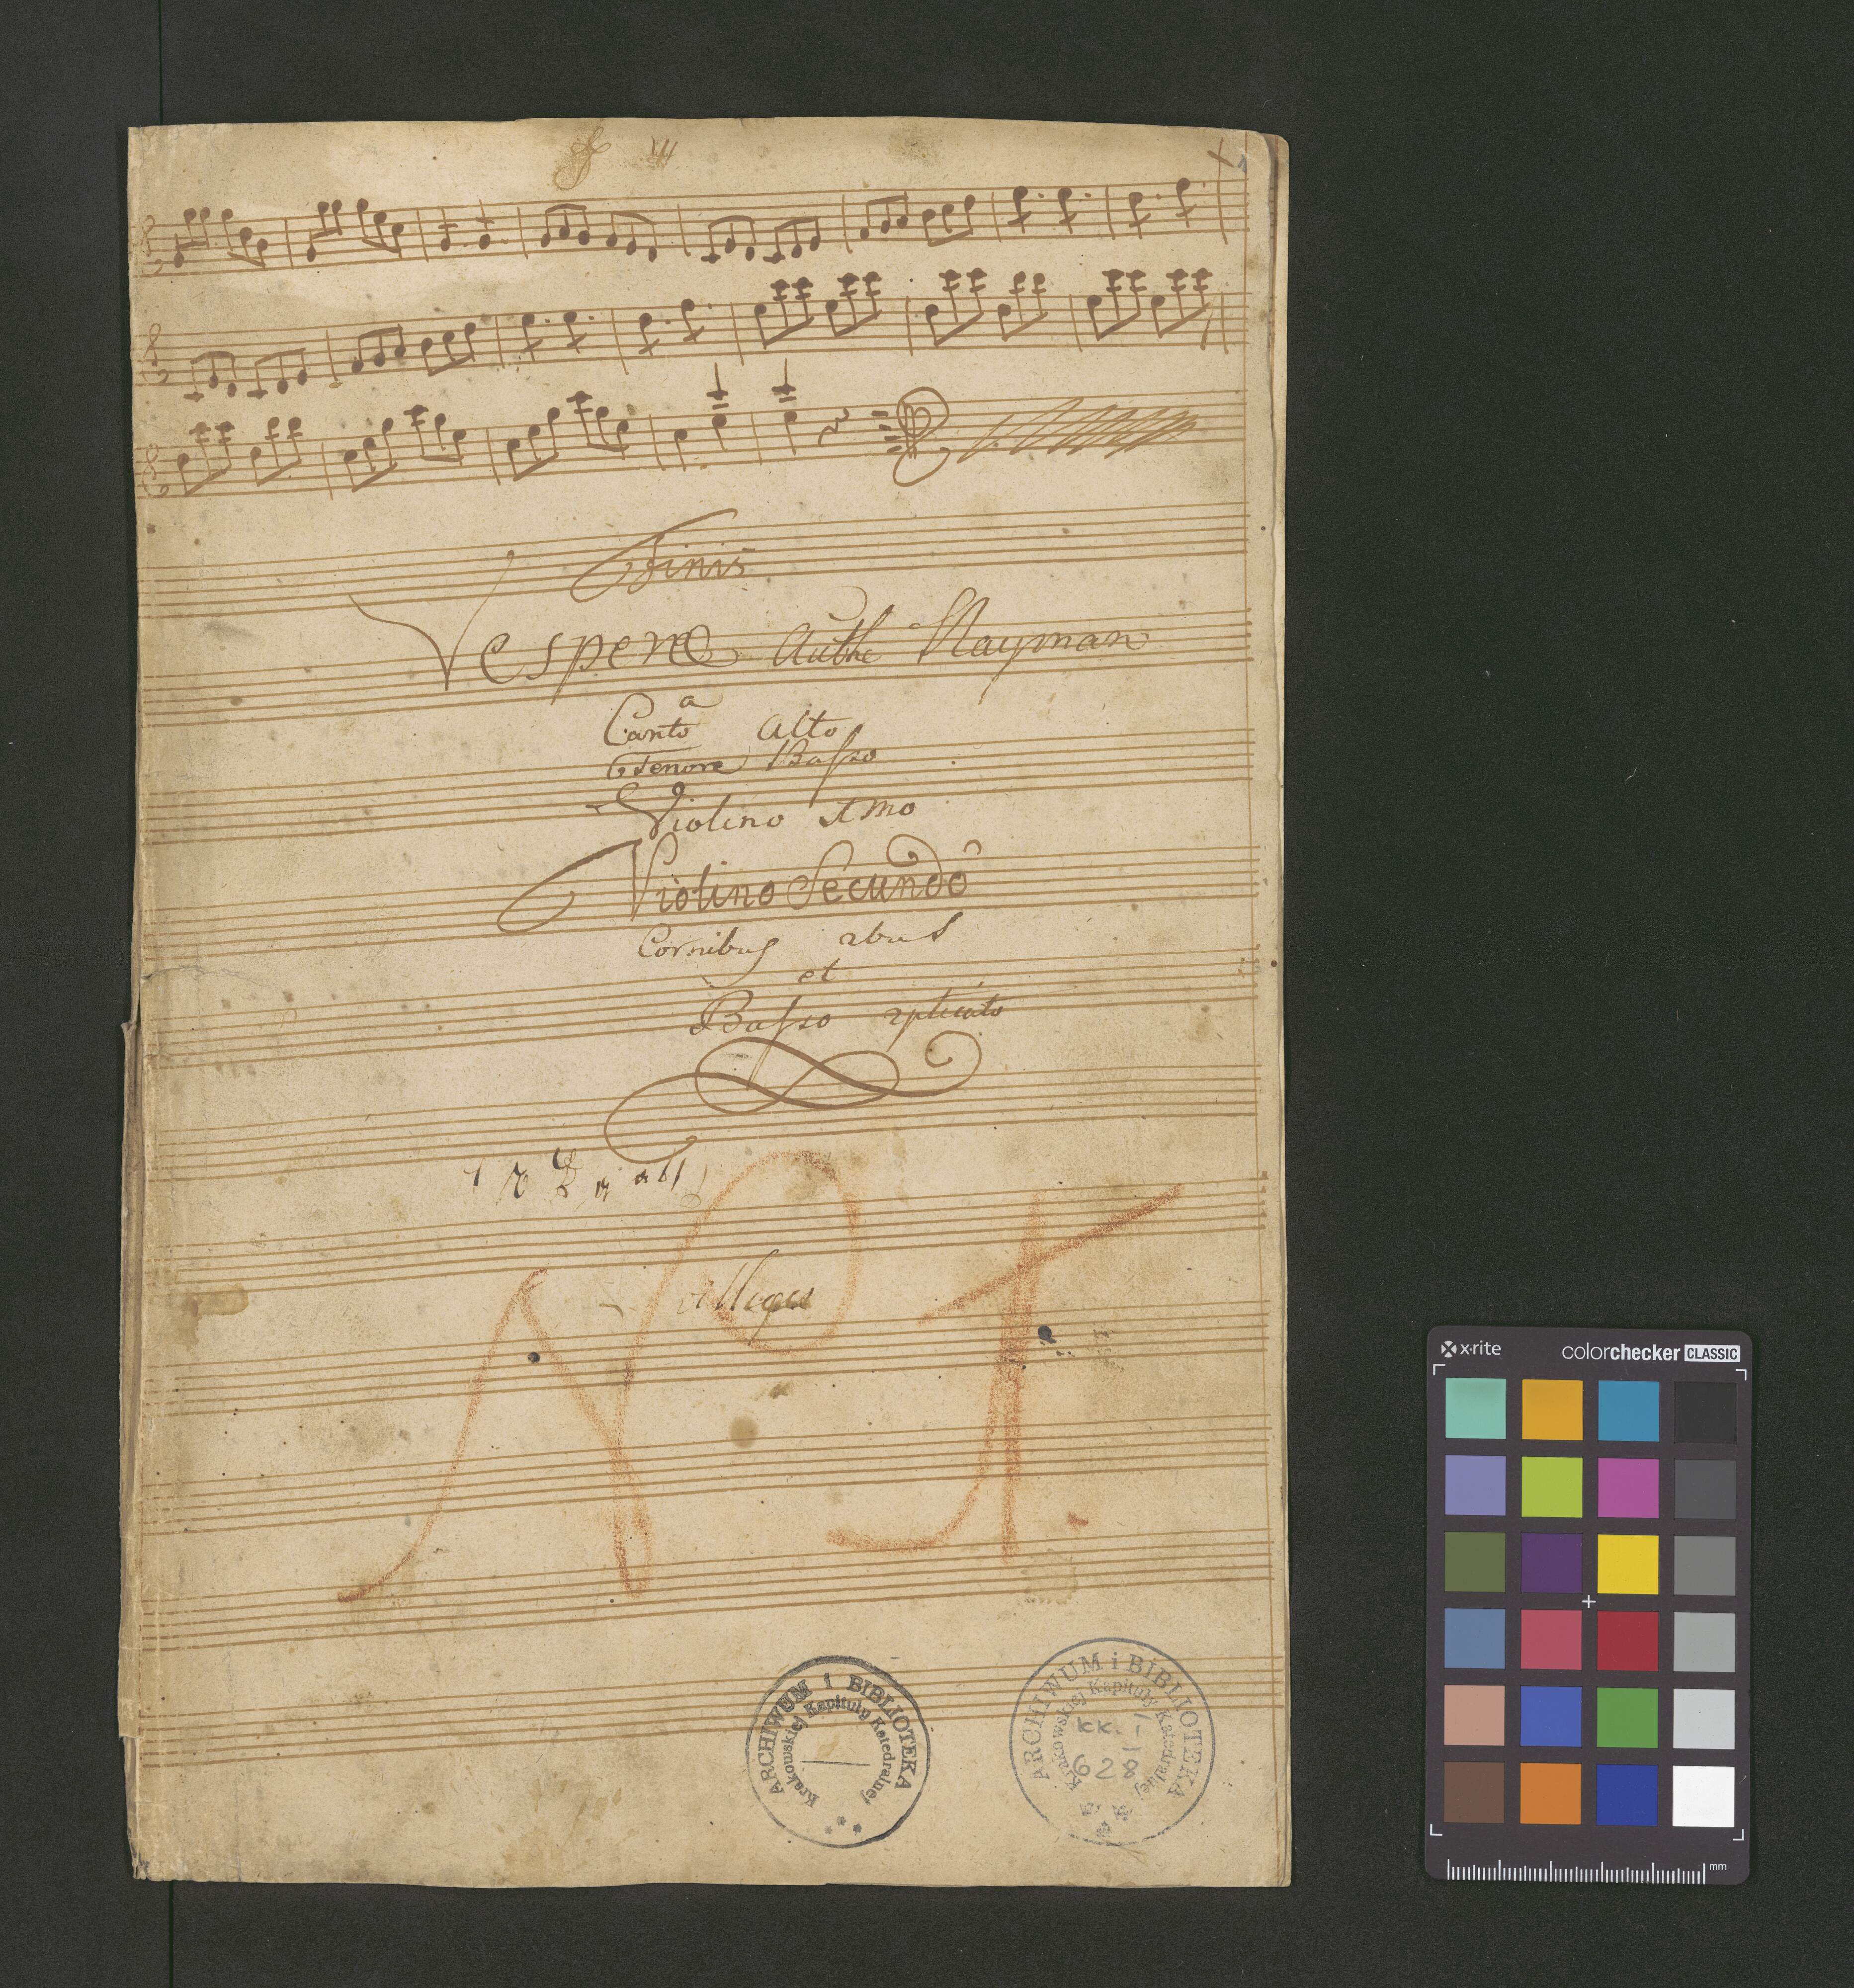 Finis
Vesperae Auth: Nayman
a
Canto Alto
Tenore Basso
Violino Imo
Violino Secundo
Cornibus 2bus
et
Basso 2plicato
No 1.
ARCHIWUM i BIBLIOTEKA
Krakowskiej Kapituły Katedralnej
ARCHIWUM i BIBLIOTEKA
Krakowskiej Kapituły Katedralnej
kk. I
628
x-rite colorchecker CLASSIC
mm